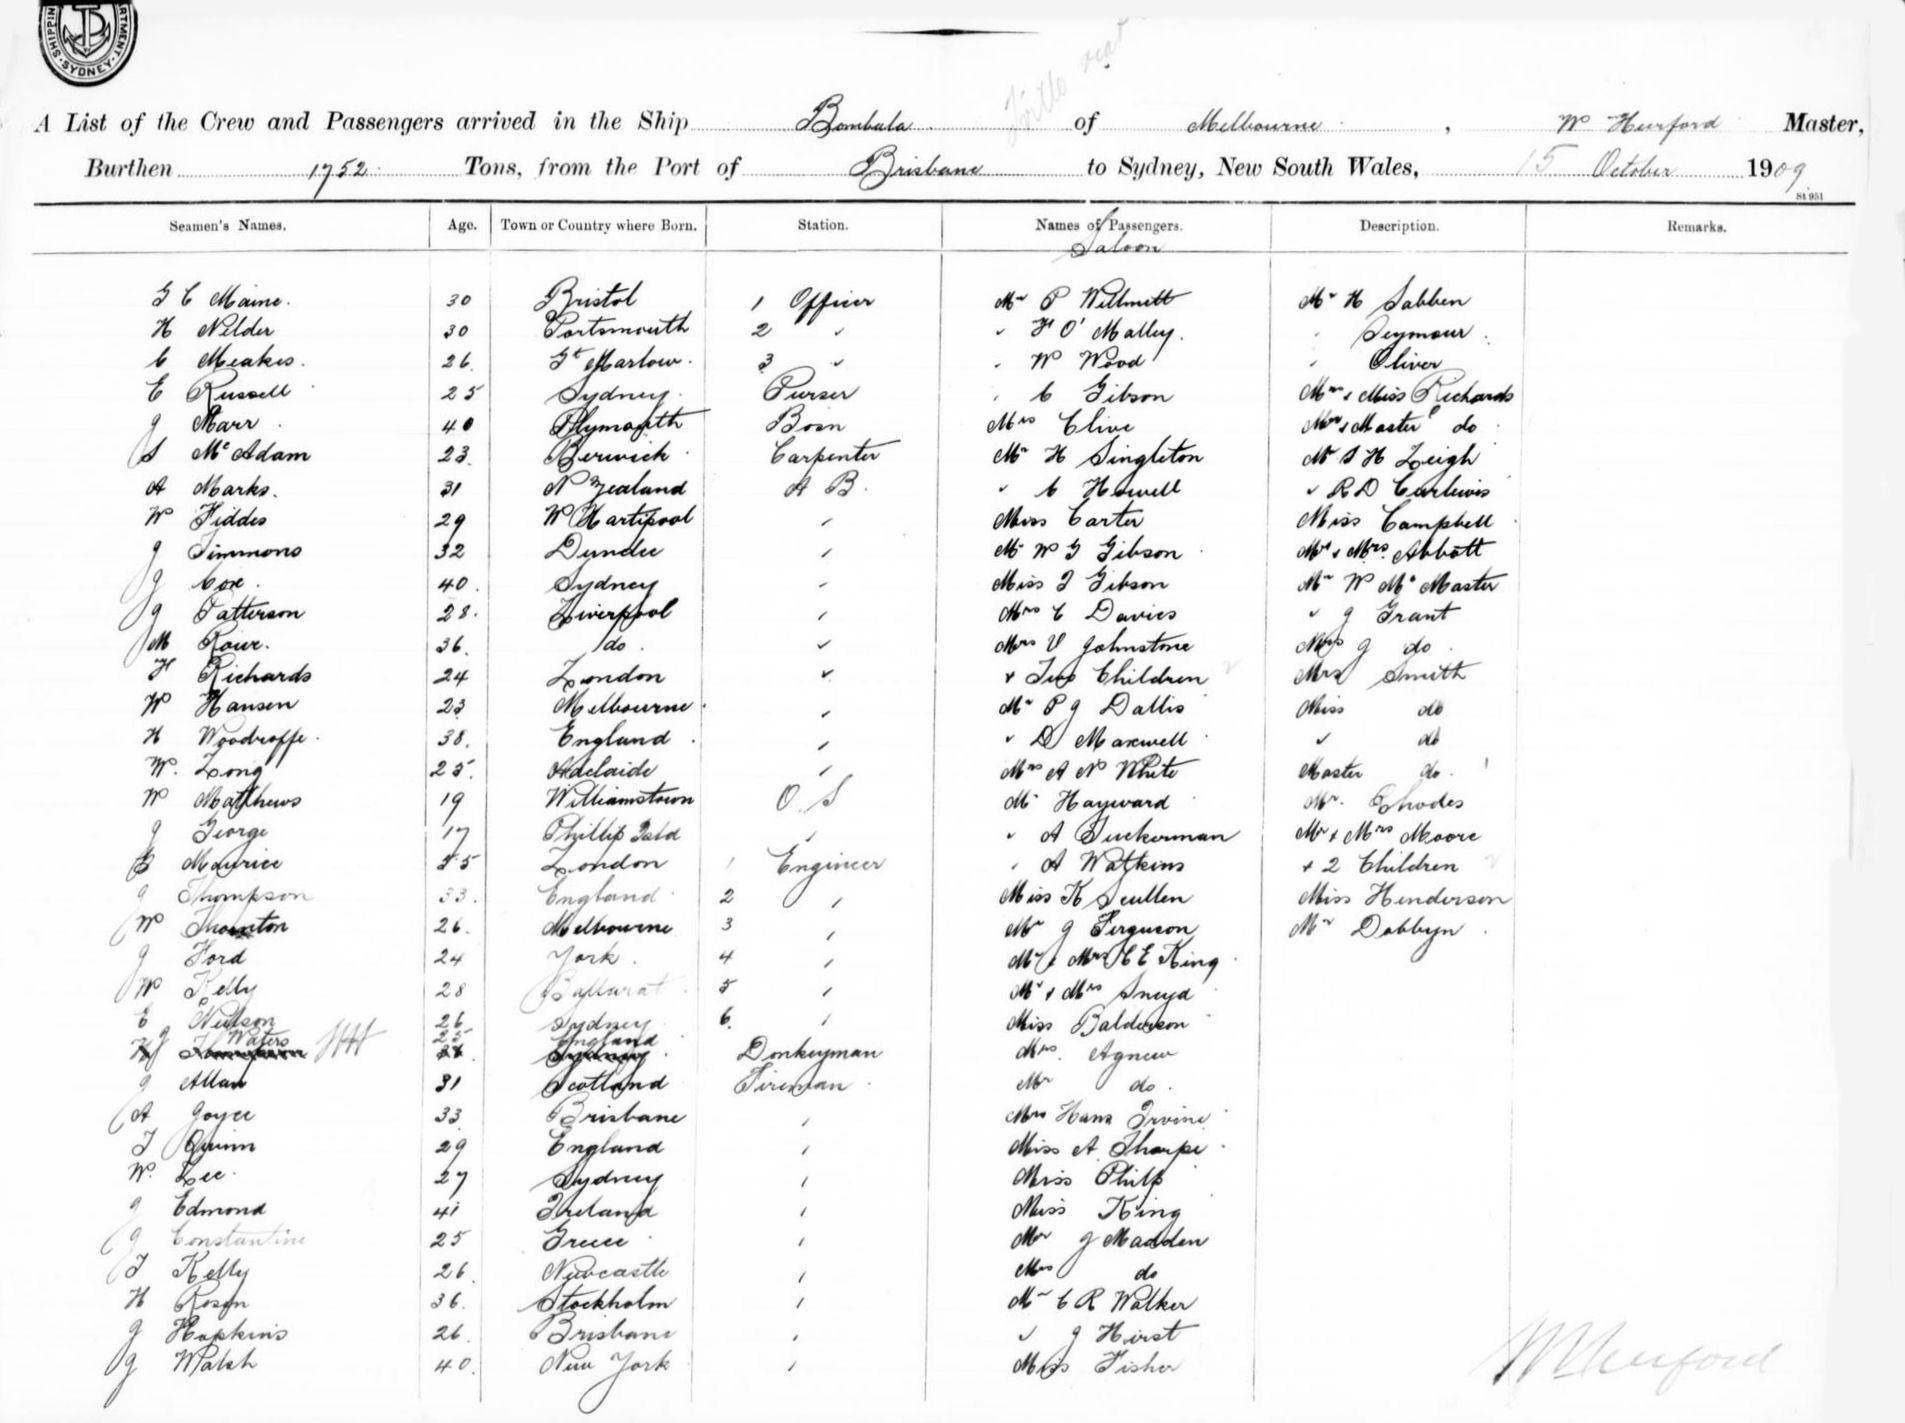 SHIPPING DEPARTMENT SYDNEY
A List of the Crew and Passengers arrived in the Ship Bombala of Melbourne, W Hurford Master,
Burthen 1752 Tons, from the Port of Brisbane to Sydney, New South Wales, 15 October 1909
St 951
Seamen's Names. Age. Town or Country where Born. Station. Names of Passengers. Description. Remarks.
Saloon
G C Maine. 30 Bristol 1 Officer Mr P Willmett Mr H Sabben
H Nelder 30 Portsmouth 2 " " F O'Malley. " Seymour
C Meakes. 26. Gt Marlow. 3 " " W Wood " Oliver
E Russell 25 Sydney. Purser " C Gibson Mrs & Miss Richards
J Marr 40 Plymouth Bosn Mrs Clive Mrs & Master do
S McAdam 23. Berwick Carpenter Mr H Singleton Mr S H Leigh
A Marks. 31 N Zealand A B. " C Howell " R D Curlewis
W Fiddes 29 W Hartlpool " Miss Carter Miss Campbell
J Simmons 32 Dundee " Mr W G Gibson Mr & Mrs Abbott
J Cox. 40. Sydney " Miss J Gibson Mr W McMaster
J Patterson 28. Liverpool " Mrs C Davies " J Grant
M Rowe. 36. do " Mrs V Johnstone Mrs J do
F Richards 24 London " & Two Children Mrs Smith
W Hansen 23 Melbourne. " Mr P J Dallis Miss do
H Woodroffe. 38. England " " D Maxwell " do
W. Long 25. Adelaide " Mrs A N White Master do.
W Matthews 19 Williamstown O. S Mr Hayward Mr. Rhodes
J George 17 Phillip Isld " " A Tuckerman Mr & Mrs Moore
Maurice 55 London 1 Engineer " A Watkins & 2 Children
J Thompson 33. England 2 " Miss K Scullen Miss Henderson
W Thornton 26. Melbourne 3 " Mr J Ferguson Mr Dobbyn
J Ford 24 York. 4 " Mr & Mrs C E King
W Kelly 28 Ballarat 5 " Mr & Mrs Sneyd
E Neilson 26 Sydney 6. " Miss Balderson
J Waters 25 England Donkeyman Mrs. Agnew
J Allan 31 Scotland Fireman Mr do.
A Joyce 33. Brisbane " Mrs Hans Irvine
T Quinn 29 England " Miss A Thorpe
W. Lee. 27 Sydney " Miss Philp
J Edmond 41 Ireland " Miss King
J Constantine 25 Greece " Mr J Madden
T Kelly 26. Newcastle " Mrs do
H Rosen 36. Stockholm " Mr C R Walker
J Hopkins 26. Brisbane " " J Hirst
J Walsh 40. New York " Miss Fisher
W Hurford